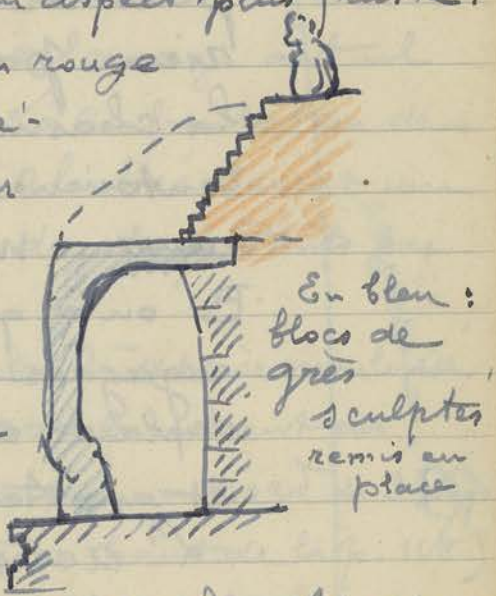 aspect plus
rouge
En bleu :
blocs de
grès
sculptés
remis en
place